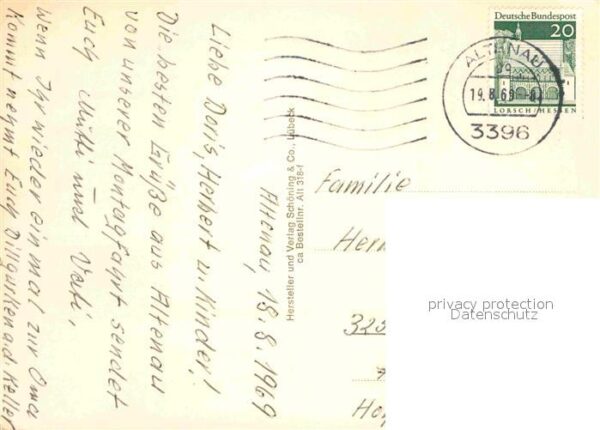 Altenau, 18.8.1969
Liebe Doris, Herbert u. Kinder!
Die besten Grüße aus Altenau
von unserer Montagfahrt sendet
Euch Mutti und Vati,
Wenn Ihr wieder ein mal zur Oma
Kommt nehmt Euch Dillgurken a.d. Keller
Hersteller und Verlag Schöning & Co., Lübeck
ca Bestellnr. Alt 318-f
Deutsche Bundespost
20
LORSCH/HESSEN
ALTENAU
19.8.69
3396
Familie
Her
325
privacy protection
Datenschutz